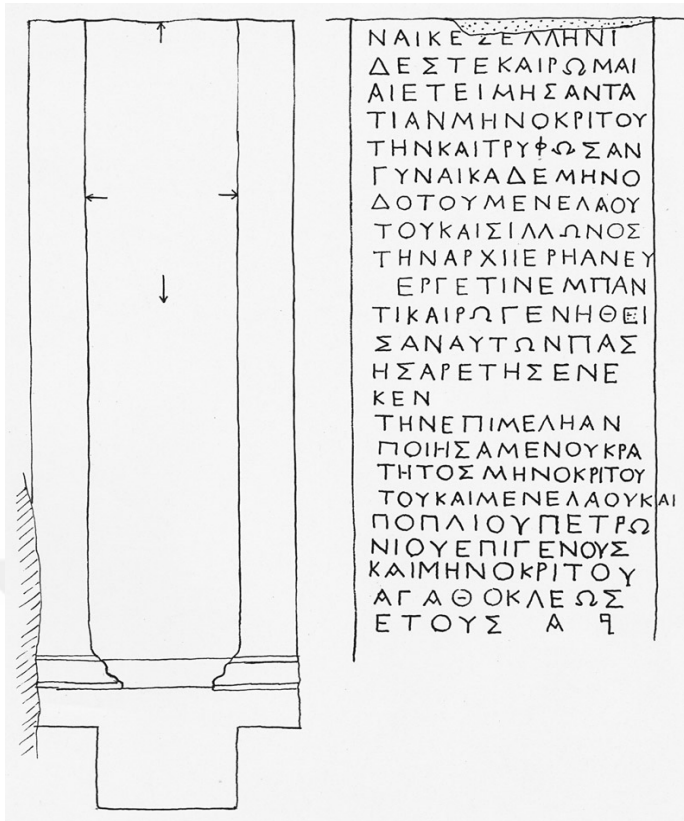 ΝΑΙΚΕΣΕΛΛΗΝΙ
ΔΕΣΤΕΚΑΙΡΩΜΑΙ
ΑΙΕΤΕΙΜΗΣΑΝΤΑ
ΤΙΑΝΜΗΝΟΚΡΙΤΟΥ
ΤΗΝΚΑΙΤΡΥΦΩΣΑΝ
ΓΥΝΑΙΚΑΔΕΜΗΝΟ
ΔΟΤΟΥΜΕΝΕΛΑΟΥ
ΤΟΥΚΑΙΣΙΛΛΩΝΟΣ
ΤΗΝΑΡΧΙΙΕΡΗΑΝΕΥ
ΕΡΓΕΤΙΝΕΜΠΑΝ
ΤΙΚΑΙΡΩΓΕΝΗΘΕΙ
ΣΑΝΑΥΤΩΝΠΑΣ
ΗΣΑΡΕΤΗΣΕΝΕ
ΚΕΝ
ΤΗΝΕΠΙΜΕΛΗΑΝ
ΠΟΙΗΣΑΜΕΝΟΥΚΡΑ
ΤΗΤΟΣΜΗΝΟΚΡΙΤΟΥ
ΤΟΥΚΑΙΜΕΝΕΛΑΟΥΚΑΙ
ΠΟΠΛΙΟΥΠΕΤΡΩ
ΝΙΟΥΕΠΙΓΕΝΟΥΣ
ΚΑΙΜΗΝΟΚΡΙΤΟΥ
ΑΓΑΘΟΚΛΕΩΣ
ΕΤΟΥΣ Α ϟ